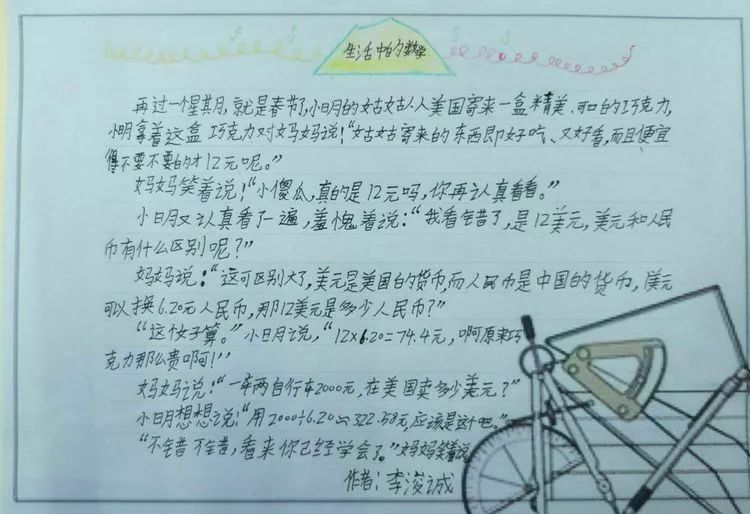 生活中的数学
再过一个星其月,就是春节了,小明的姑姑从美国寄来一盒精美、可口的巧克力,
小明拿着这盒巧克力对妈妈说:“姑姑寄来的东西即好吃、又好看,而且便宜
得不要不要的才12元呢。”
妈妈笑着说:“小傻瓜,真的是12元吗,你再认真看看。”
小明又认真看了一遍,羞愧着说:“我看错了,是12美元,美元和人民
币有什么区别呢?”
妈妈说:“这可区别大了,美元是美国的货币,而人民币是中国的货币,1美元
可以换6.20元人民币,那12美元是多少人民币?”
“这个好算。”小明说,“12×6.20=74.4元,啊原来巧
克力那么贵啊!”
妈妈说:“一车两自行车2000元,在美国卖多少美元?”
小明想想说:“用2000÷6.20≈322.58元,应该是这个吧。”
“不错不错,看来你已经学会了。”妈妈笑着说
作者:李浚诚